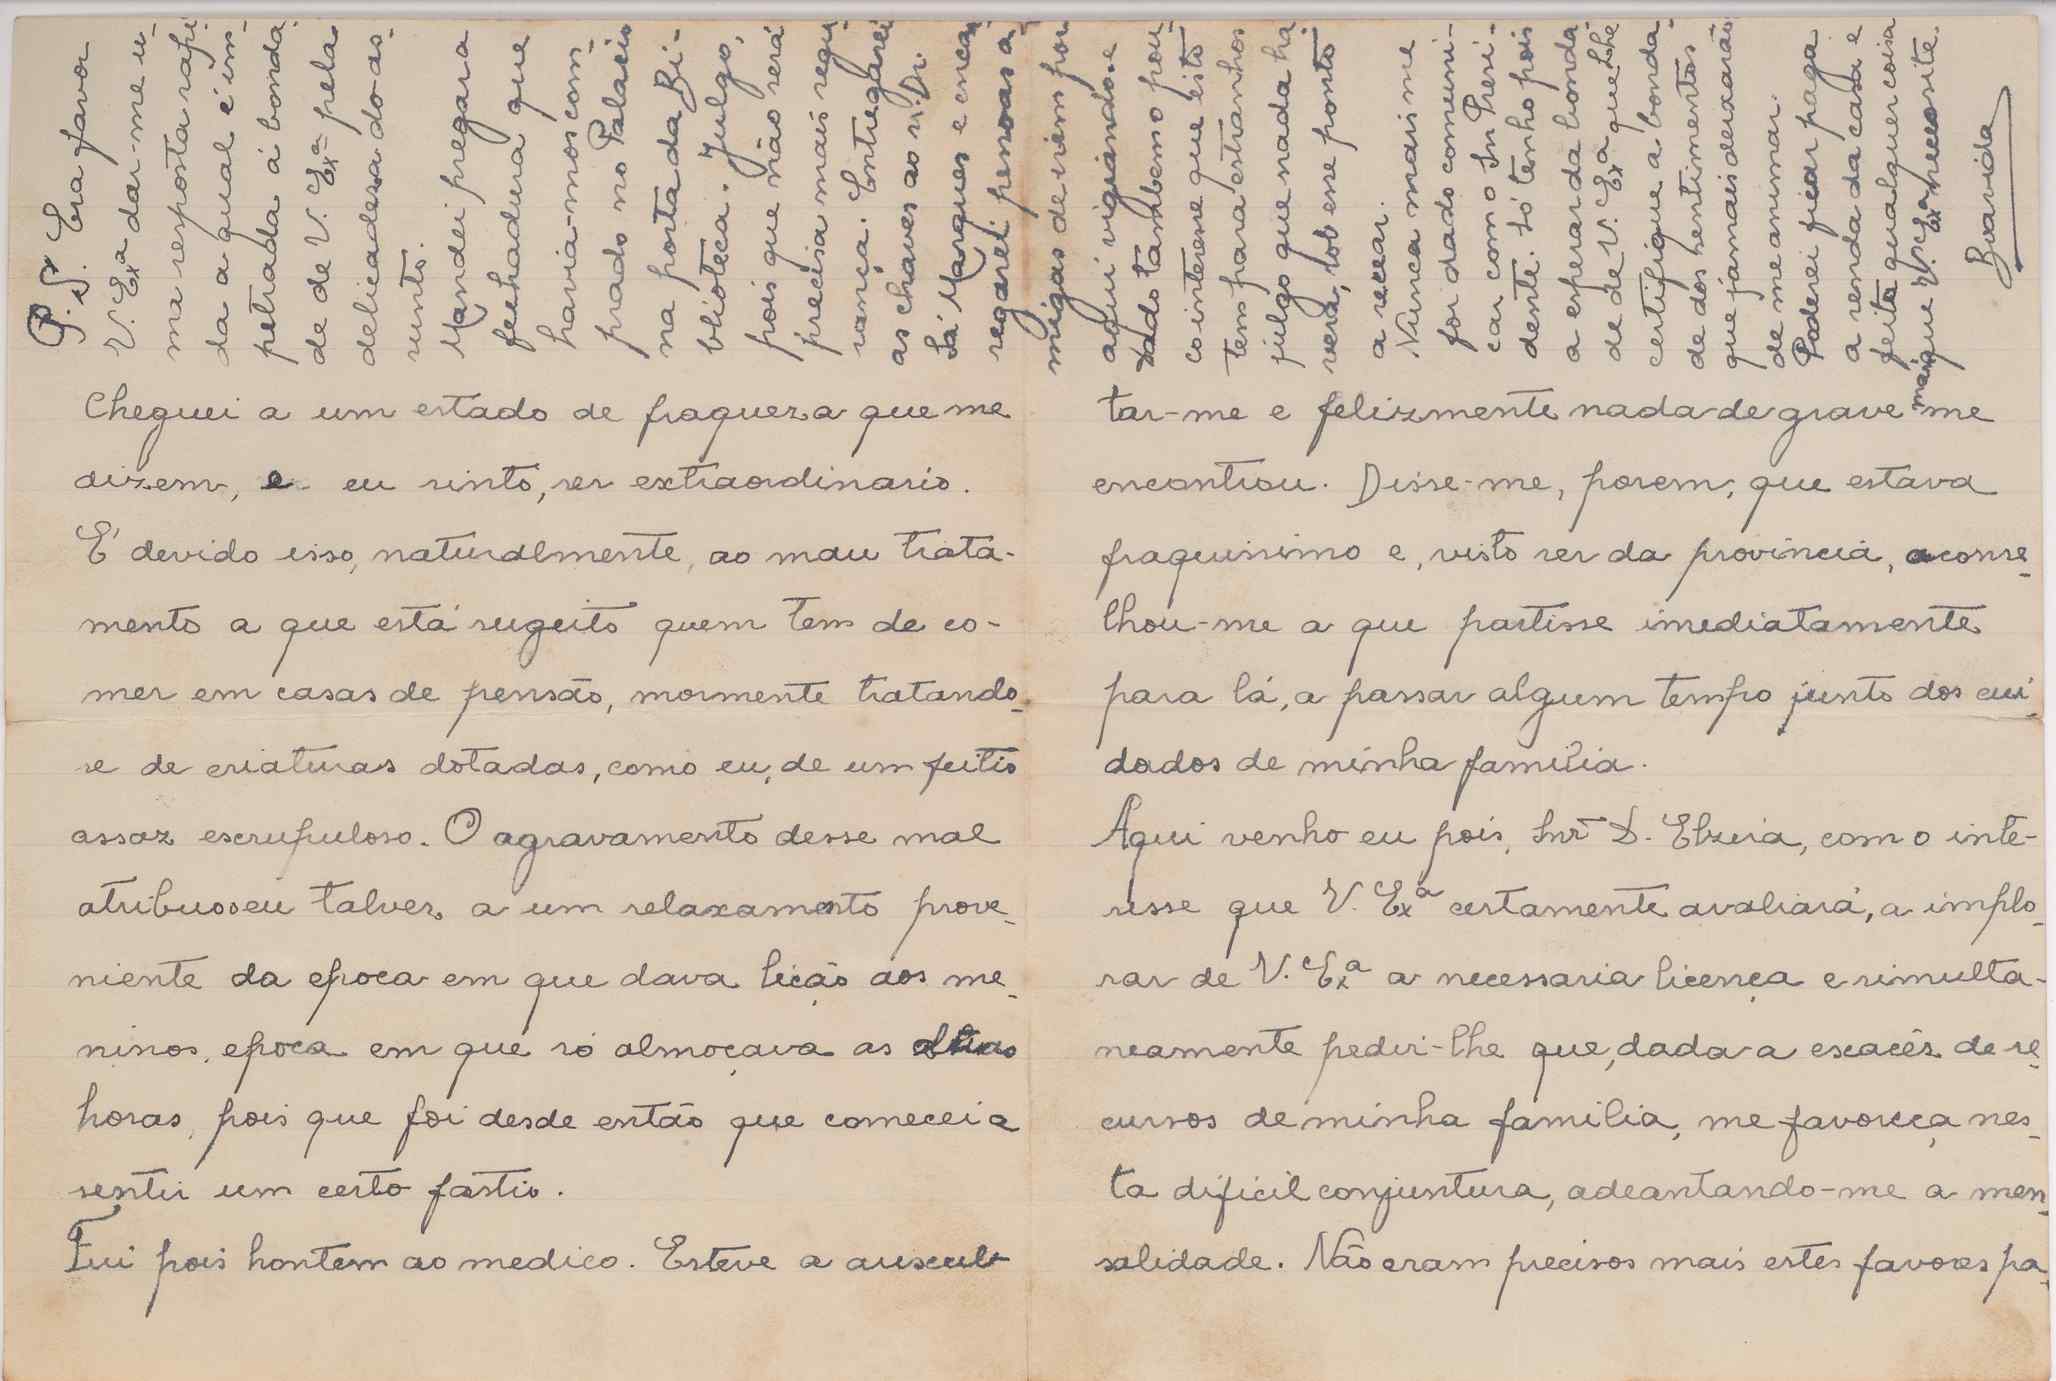 Cheguei a um estado de fraqueza que me
dizem, e eu sinto, ser extraordinario.
É devido isso, naturalmente, ao mau trata-
mento a que está sugeito quem tem de co-
mer em casas de pensão, mormente tratando-
se de criaturas dotadas, como eu, de um feitio
assaz escrupuloso. O agravamento desse mal
atribuo-o eu talvez a um relaxamento prove-
niente da epoca em que dava lição aos me-
ninos, epoca em que só almoçava as
horas, pois que foi desde então que comecei a
sentir um certo fastio.
Fui pois hontem ao medico. Esteve a auscul-
tar-me e felizmente nada de grave me
encontrou. Disse-me, porem, que estava
fraquissimo e, visto ser da provincia, aconse-
lhou-me a que partisse imediatamente
para lá, a passar algum tempo junto dos cui-
dados de minha familia.
Aqui venho eu pois, Snrª D. Elzira, com o inte-
resse que V. Exª certamente avaliará, a implo-
rar de V. Exª a necessaria licença e simulta-
neamente pedir-lhe que, dada a escacês de re-
cursos de minha familia, me favoreça nes-
ta dificil conjuntura, adeantando-me a men-
salidade. Não eram precisos mais estes favores pa-
P.S. Era favor
V. Exª dar-me u-
ma resposta rapi-
da a qual é im-
petrada á bonda-
de de V. Exª pela
delicadesa do as-
sunto.
Mandei pregar a
fechadura que
havia-mos com-
prado no Palacio
na porta da Bi-
blioteca. Julgo,
pois que não será
precisa mais segu-
rança. Entregarei
as chaves ao sr. Dr.
Sá Marques e encar-
regarei pessoas a-
migas de irem por
aqui vigiando. e
dado tambem o pou-
co interesse que isto
tem para estranhos
julgo que nada ha-
verá, sob esse ponto
a recear.
Nunca mais me
foi dado comuni-
car com o Snr Presi-
dente. Só tenho pois
a esperar da bonda-
de de V. Exª que lhe
certifique a bonda-
de dos sentimentos
que jamais deixarão
de me animar.
Poderei ficar paga
a renda da casa e
feita qualquer coisa
mais que V. Exª necessite.
Boavida